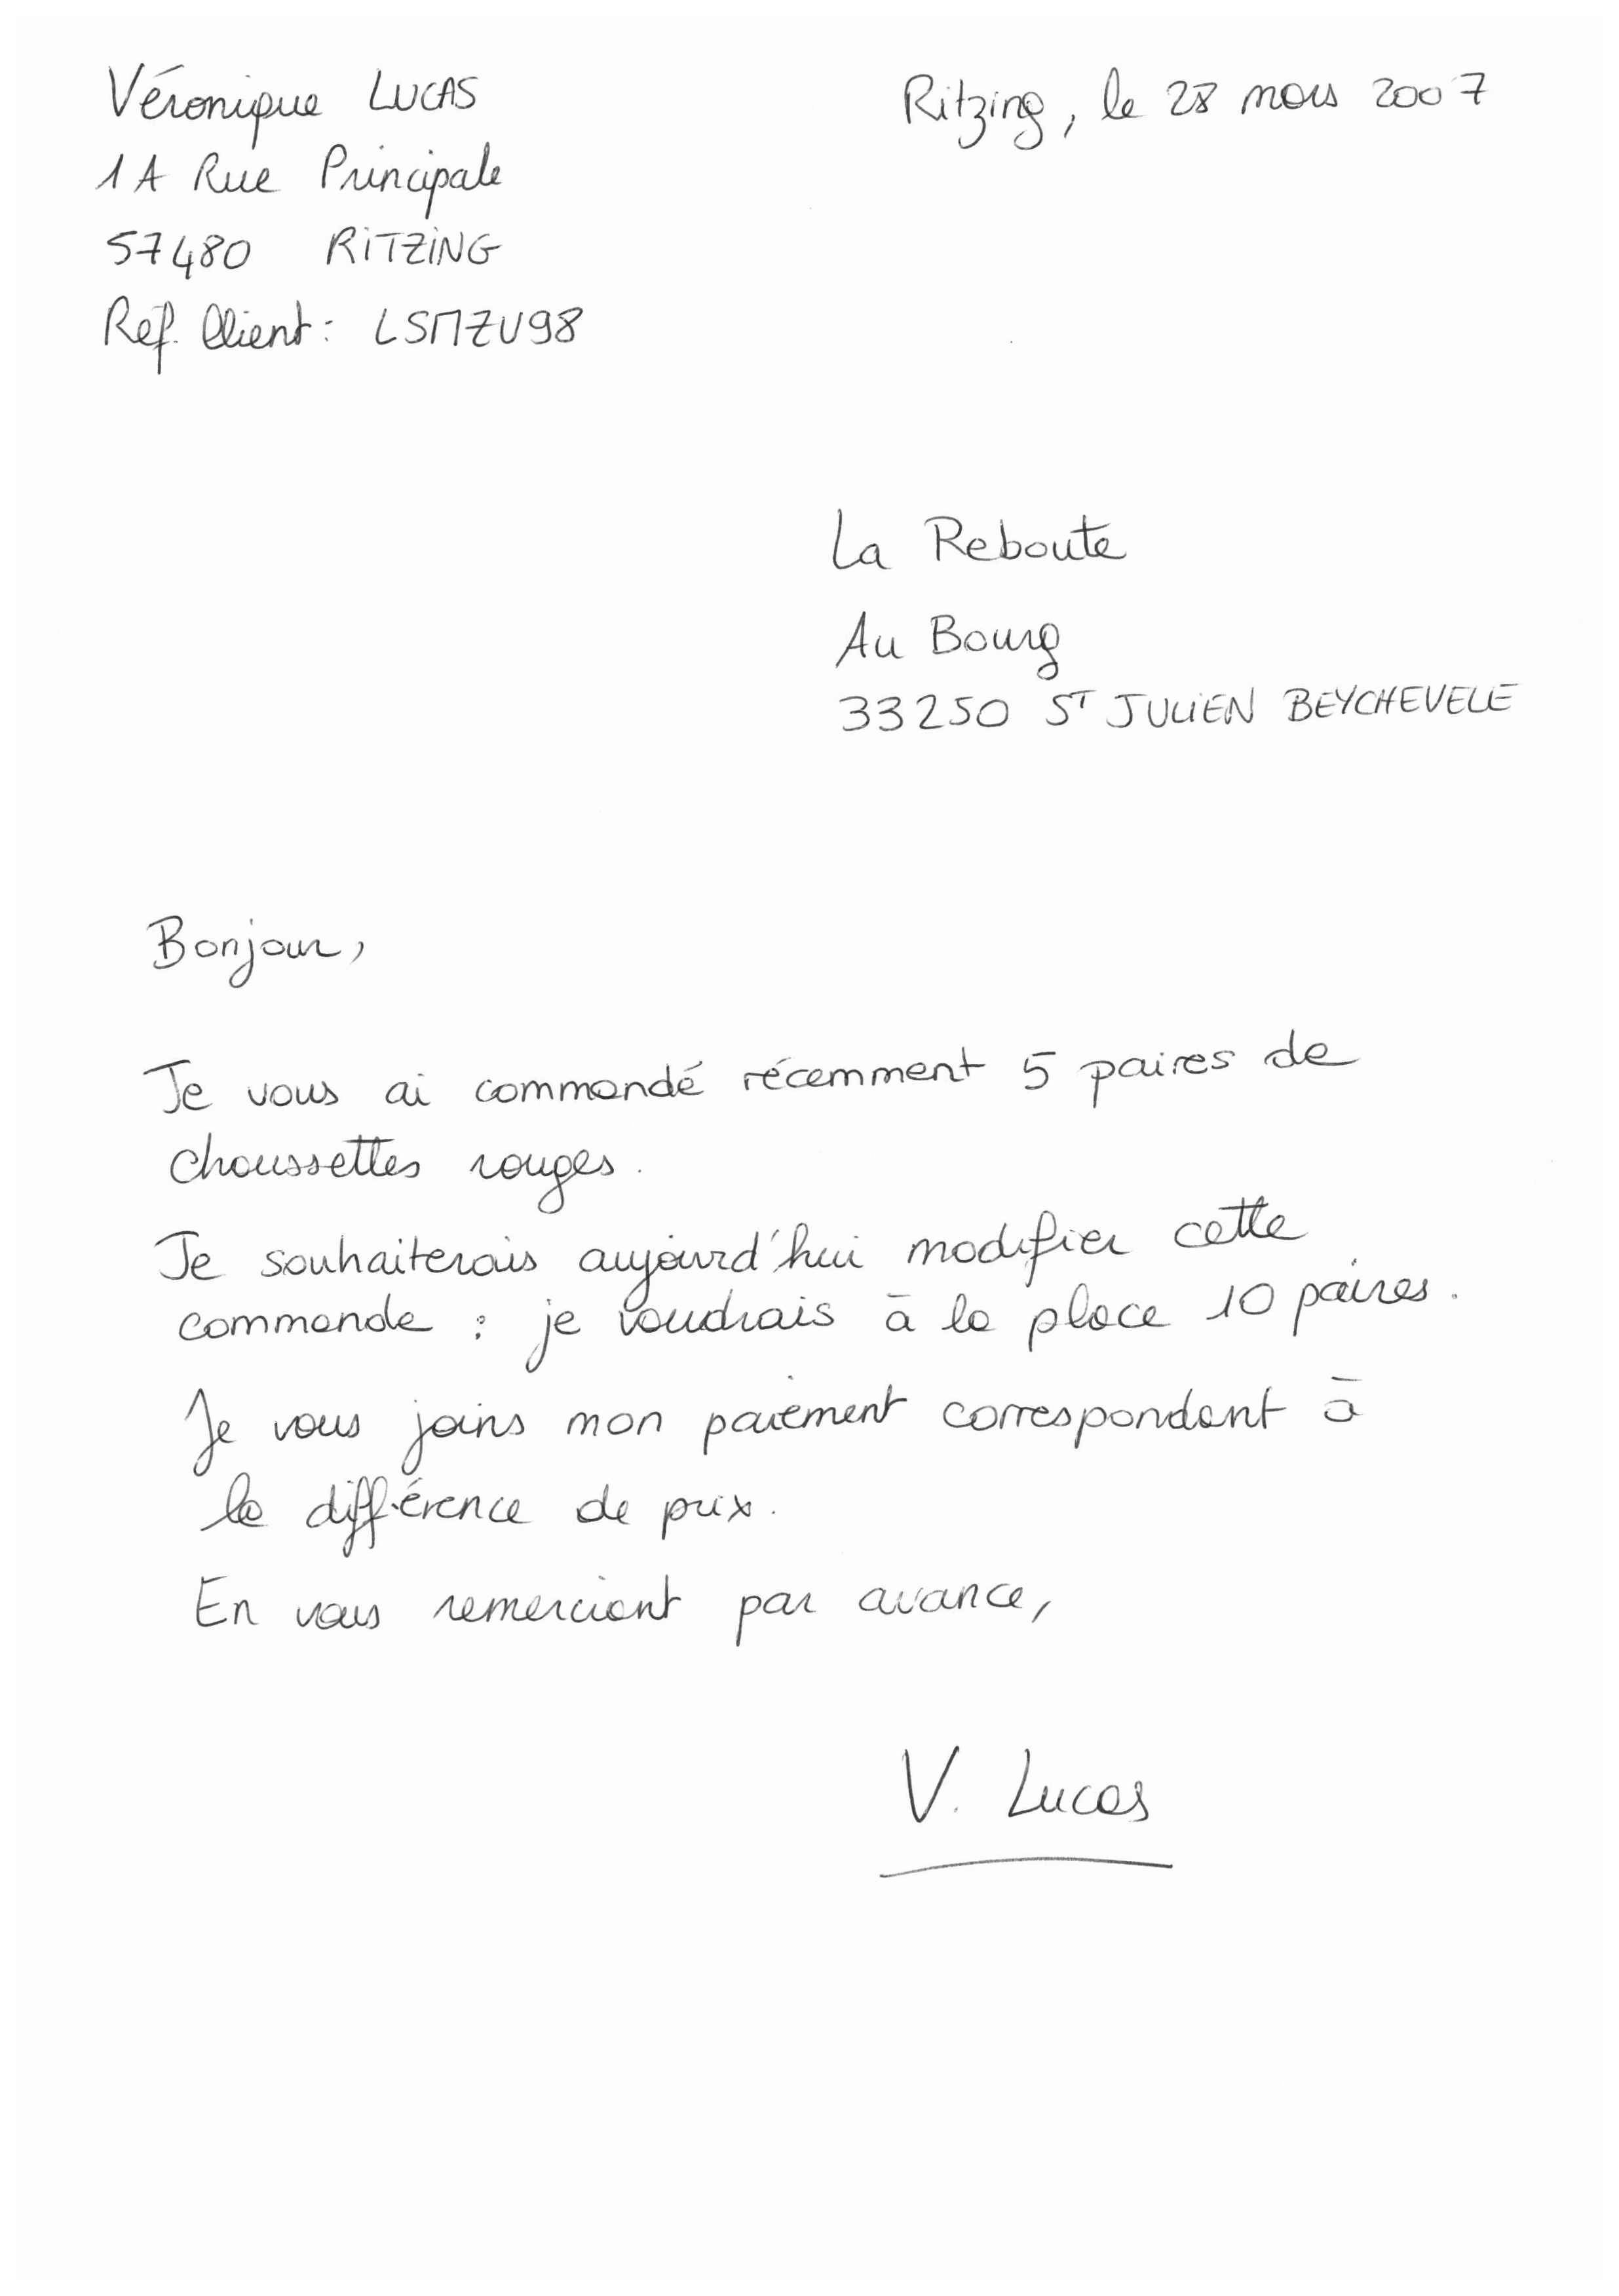 Véronique LUCAS
Ritzing, le 28 mars 2007
1A Rue Principale
57480 RITZING
Réf. Client : LSMZU98
La Reboute
Au Bourg
33250 ST JULIEN BEYCHEVELE
Bonjour,
Je vous ai commandé récemment 5 paires de
chaussettes rouges.
Je souhaiterais aujourd'hui modifier cette
commande : je voudrais à la place 10 paires.
Je vous joins mon paiement correspondant à
la différence de prix.
En vous remerciant par avance,
V. Lucas